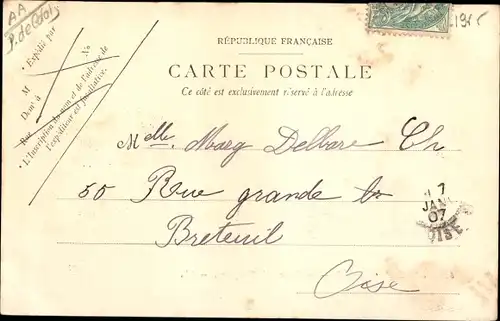 AA
1915
RÉPUBLIQUE FRANÇAISE
CARTE POSTALE
Ce côté est exclusivement réservé à l'adresse
Expédié par
M
Demt à
Rue
No
L'Inscription du nom et de l'adresse de
l'expéditeur est facultative.
Melle Marg Delbare Ch
50 Rue grande
Breteuil
Oise
7
JANV
07
OISE